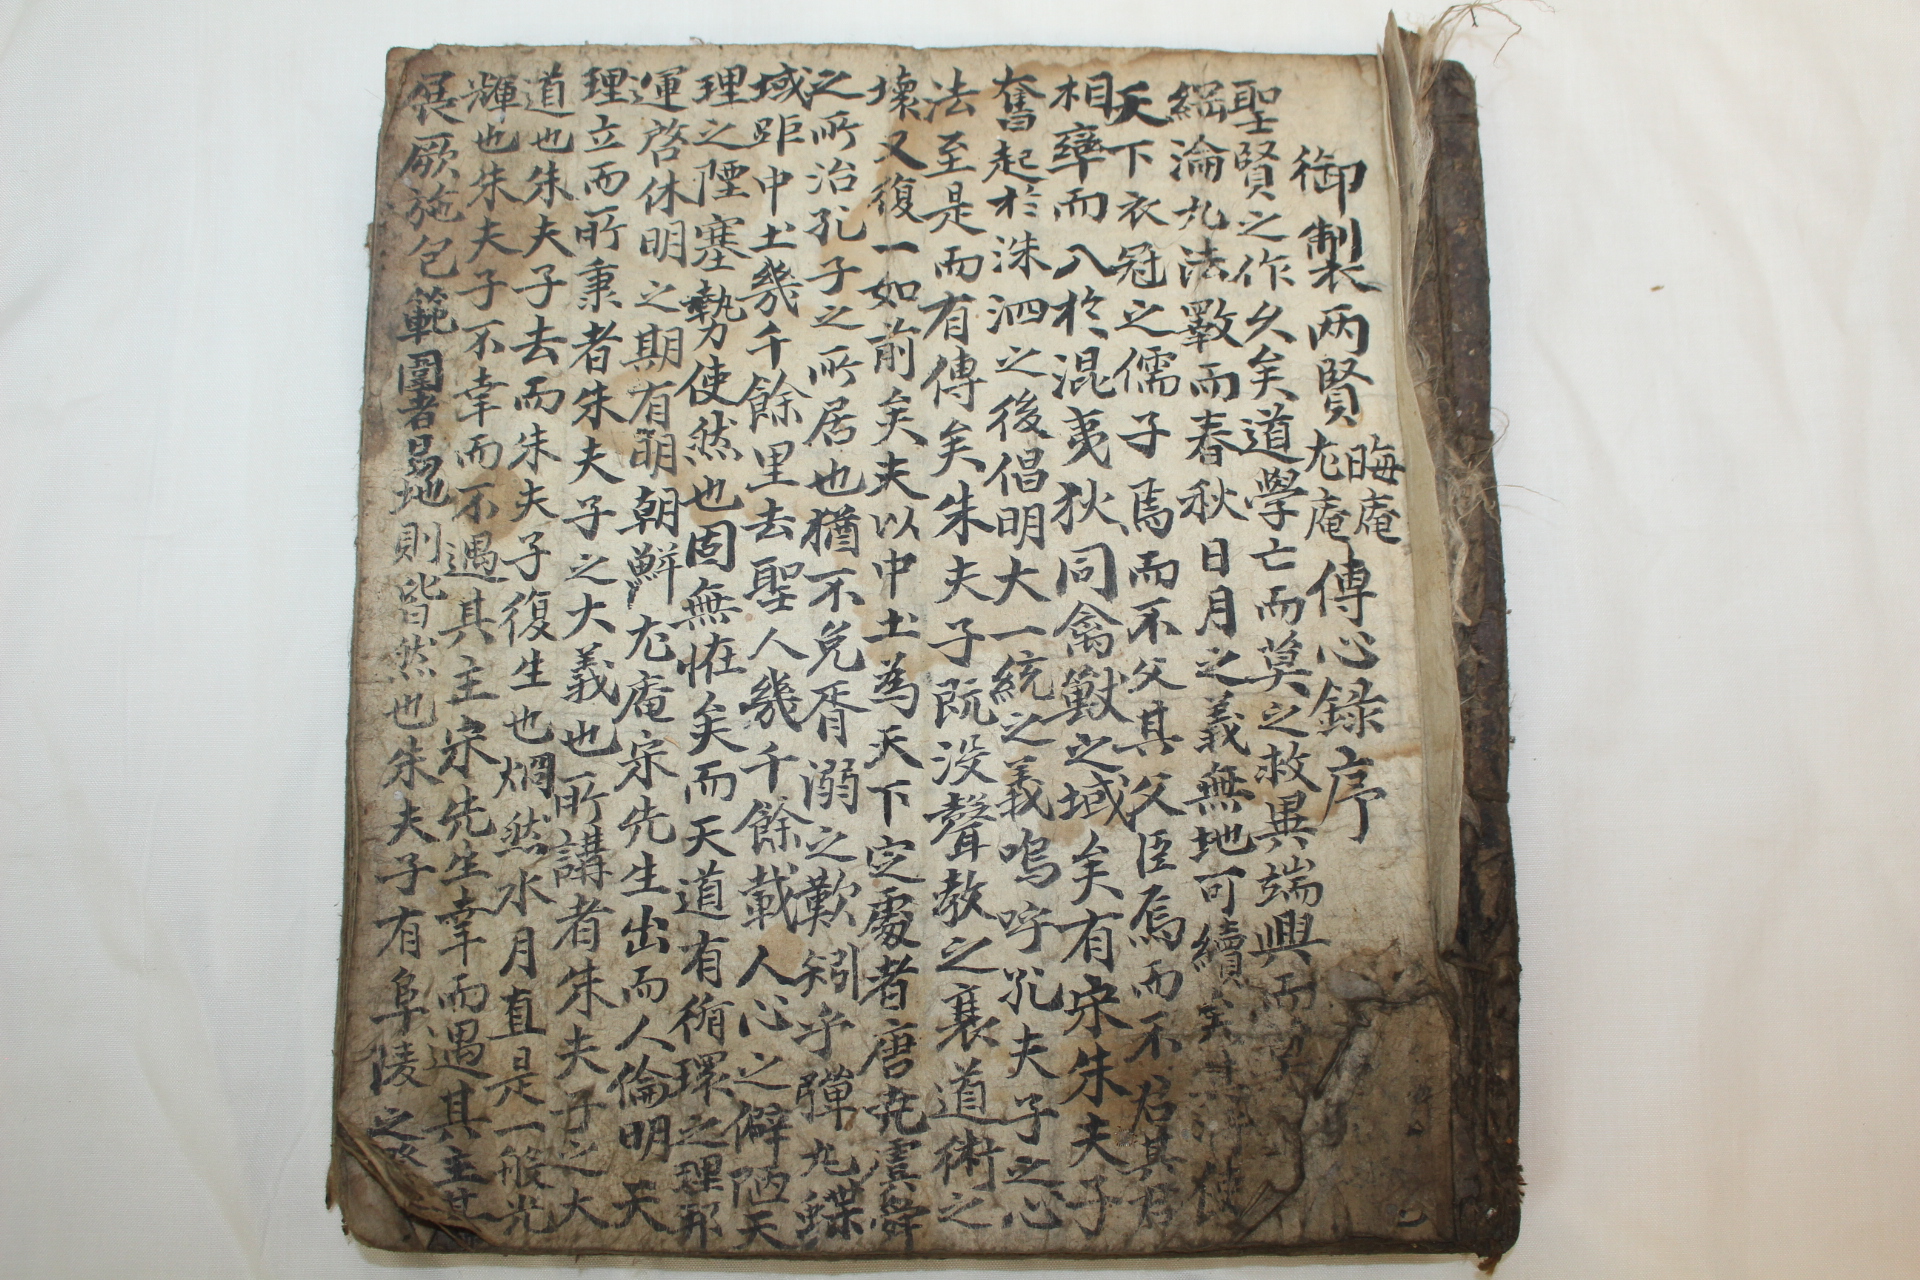 御製两賢晦庵尤庵傳心錄序
聖賢之作久矣道學亡而莫之救異端興而
綱淪九法斁而春秋日月之義無地可續使
天下衣冠之儒子焉而不父其父臣焉而不君其君
相率而入於混夷狄同禽獸之域矣有宋朱夫子
奮起於洙泗之後倡明大一統之義嗚呼孔夫子之心
法至是而有傳矣朱夫子旣没聲教之衰道術之
壞又復一如前矣夫以中土為天下定處者唐堯虞舜
之所治孔子之所居也猶不免胥溺之歎矧乎彈丸蝶
域距中土幾千餘里去聖人幾千餘載人心之僻陋天
理之堙塞勢使然也固無怪矣而天道有循環之理邦
運啓休明之期有明朝鮮尤庵宋先生出而人倫明天
理立而所秉者朱夫子之大義也所講者朱夫子之大
道也朱夫子去而朱夫子復生也烱然水月直是一般光
輝也朱夫子不幸而不遇其主宋先生幸而遇其主其
展厥施包範圍者易地則皆然也朱夫子有阜陵之